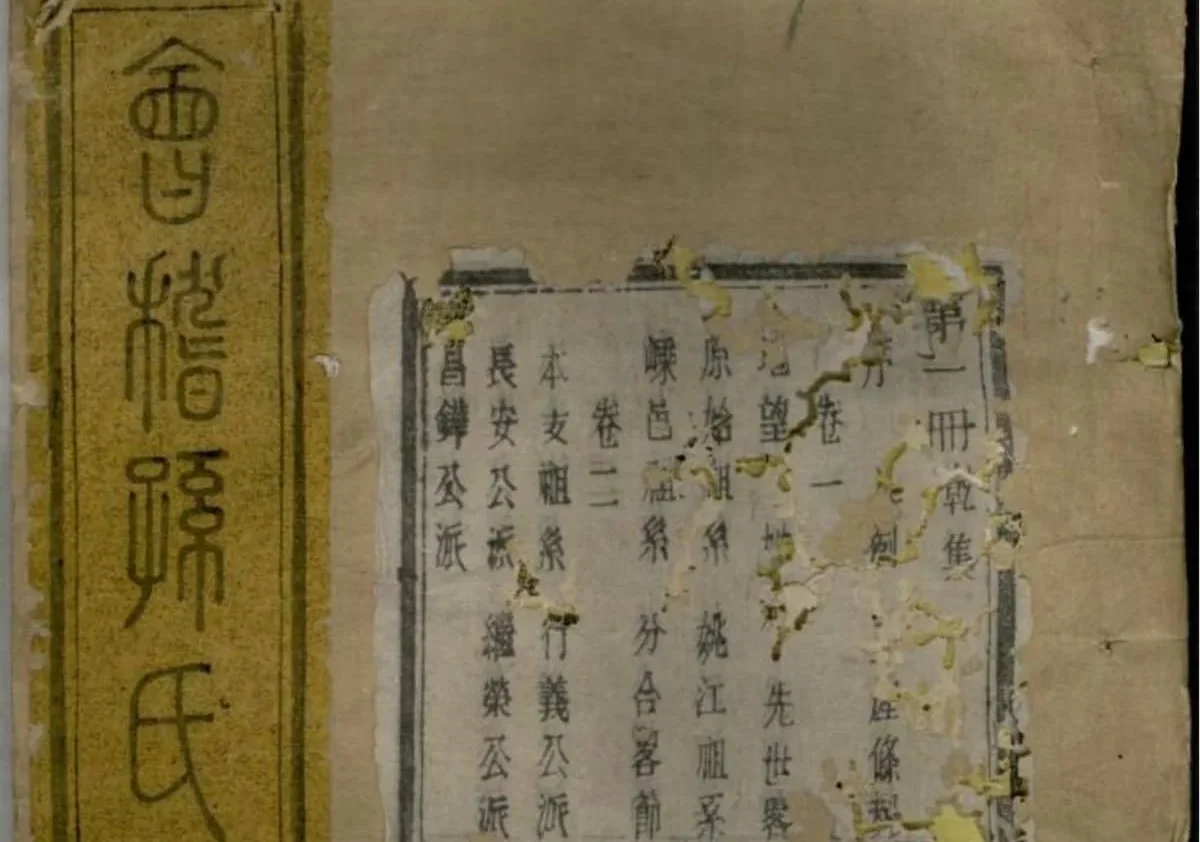 會稽孫氏
第一冊乾集
序 例 條
卷一
望 先世畧
原始祖系 姚江祖系
嵊邑祖系 分合畧節
卷二
本支祖系 行義公派
長安公派 繼榮公派
昌鏵公派